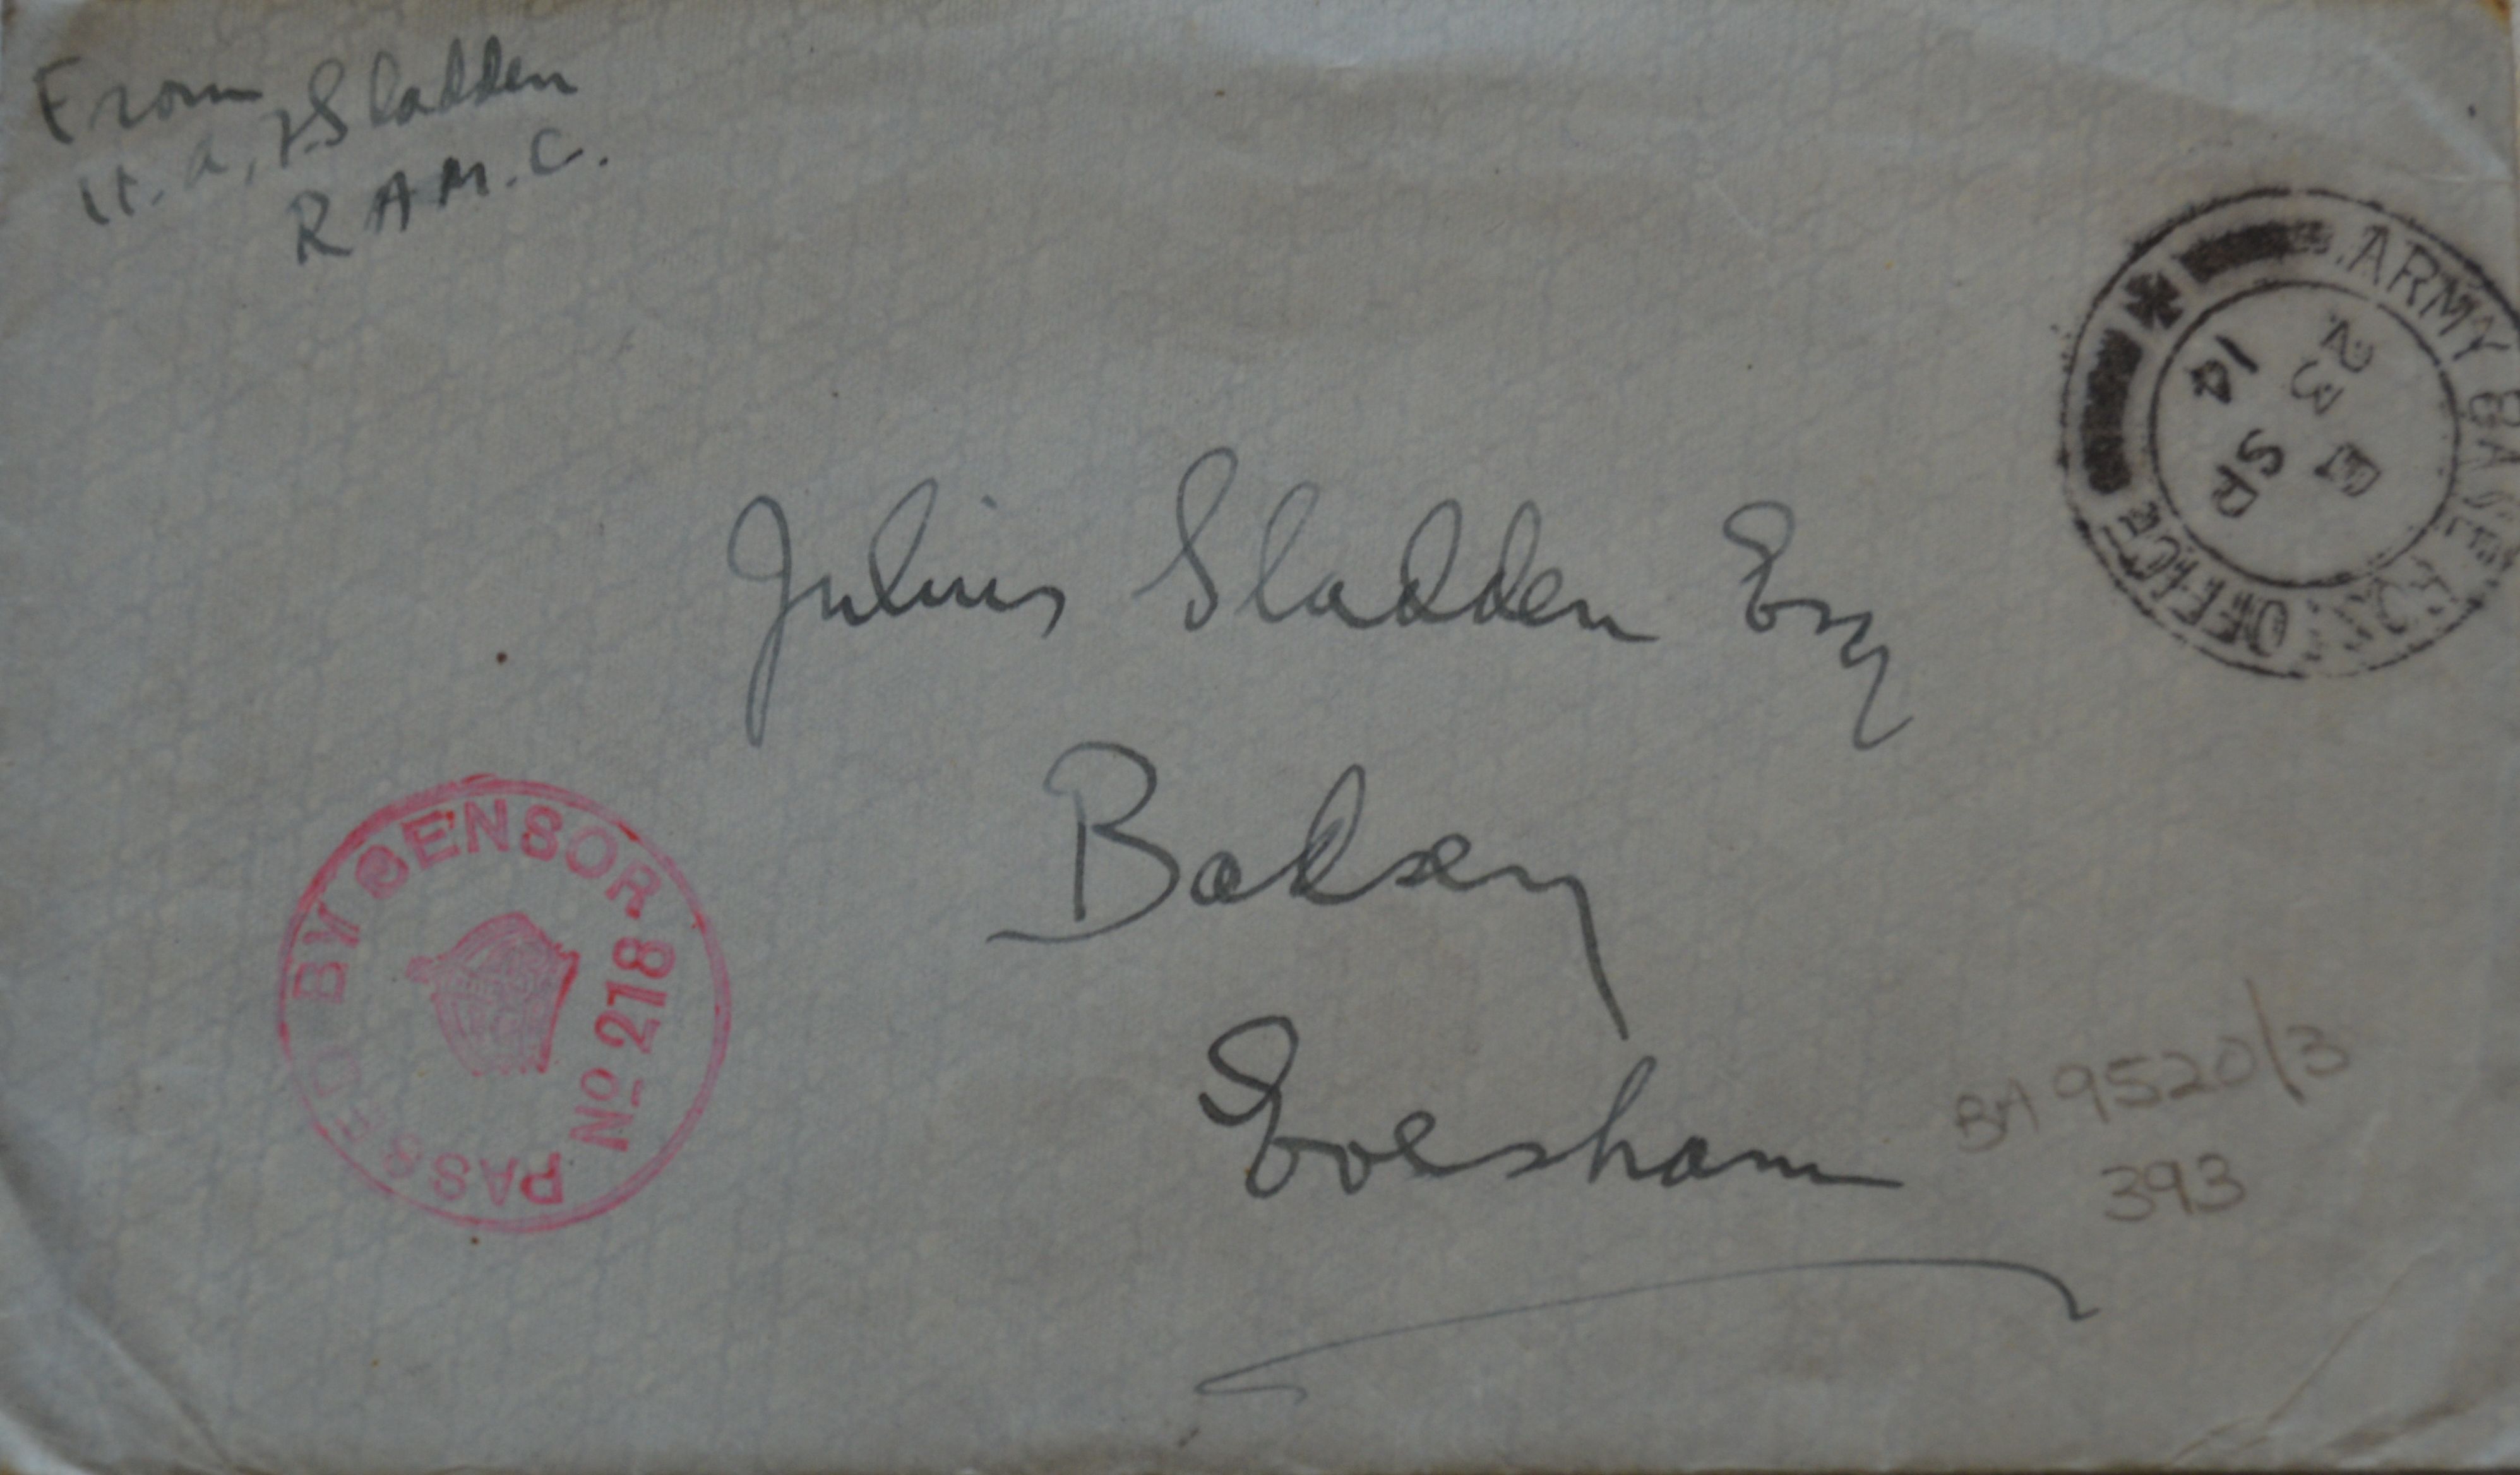 From
Lt. A. F. Sladden
R A M. C.
ARMY BASE POST OFFICE
E
23
SP
14
Julius Sladden Esq
Badsey
Evesham
PASSED BY CENSOR
No 218
BA 9520/3
393